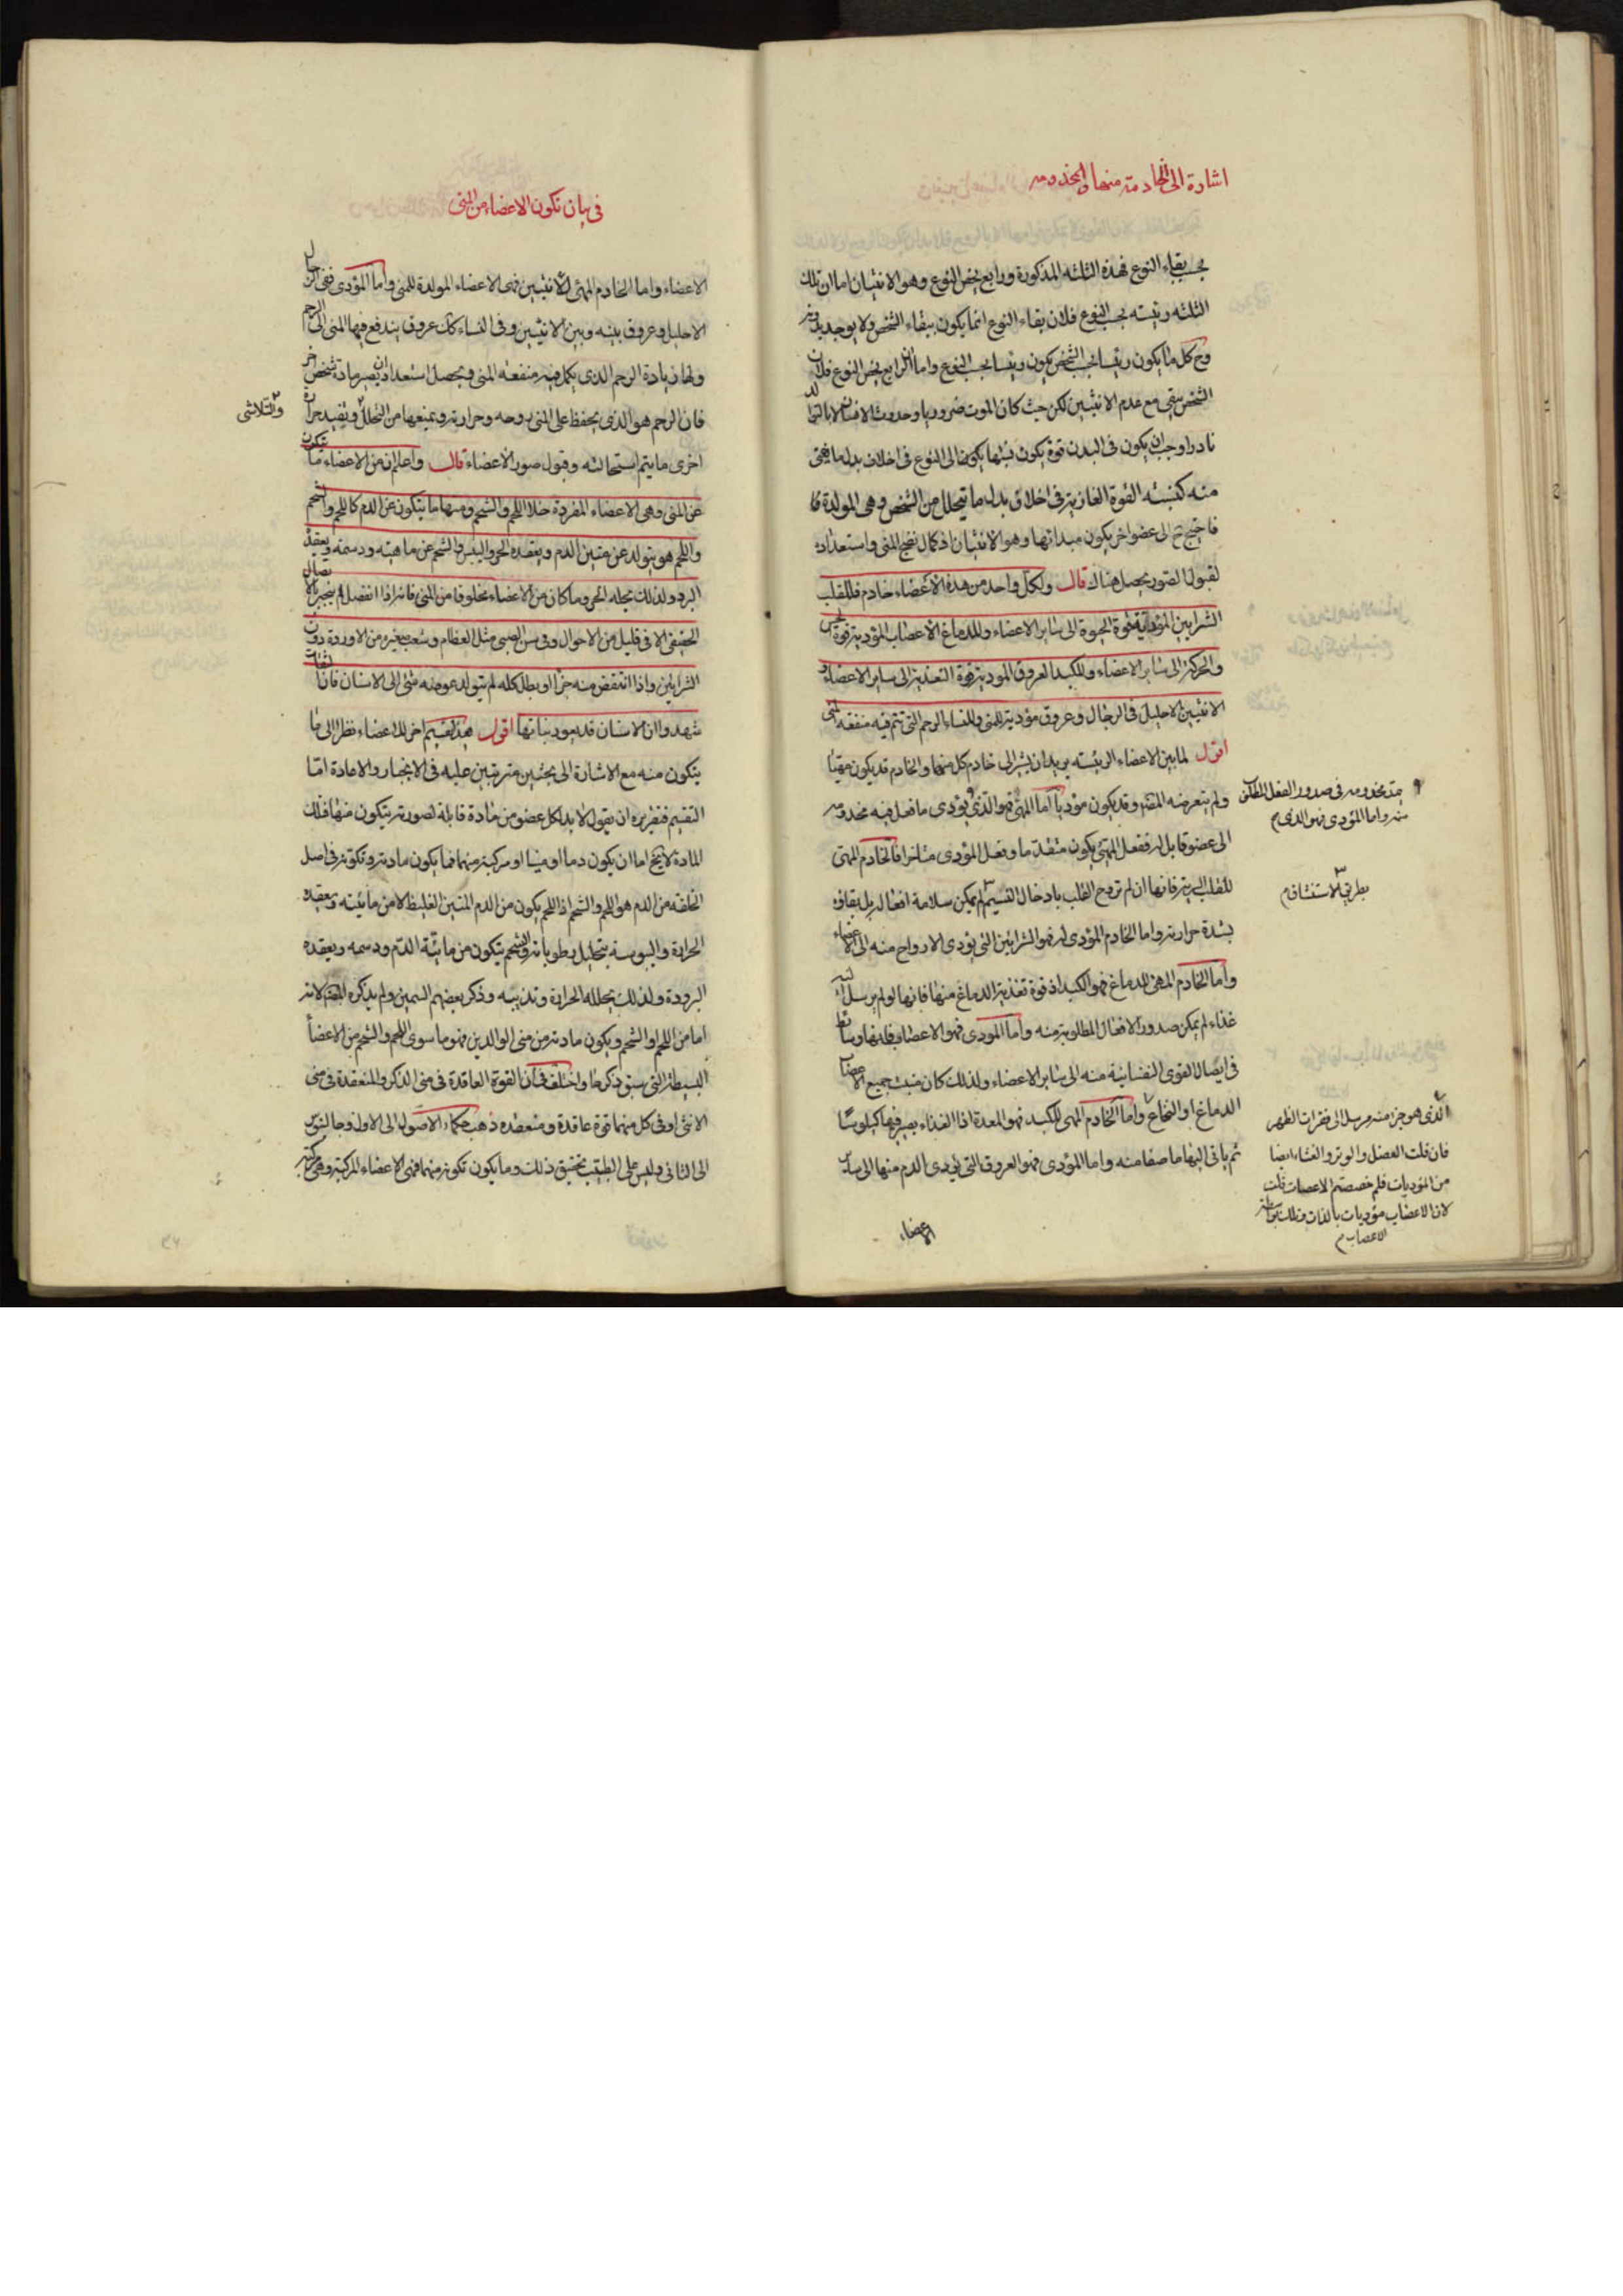 اشارة الى الخادمة منها والمخدومه
بحسب بقاء النوع فهذه الثلثه المذكورة ورابع يخص النوع وهو الانثيان اما ان تلك
الثلثه رئيسه بحسب النوع فلان بقاء النوع انما يكون ببقاء الشخص ولا يوجد بدونه
وح كل ما يكون رئيسا بحسب الشخص يكون رئيسا بحسب النوع واما ان الرابع يخص النوع فلان
الشخص يبقى مع عدم الانثيين لكن حيث كان الموت ضروريا وحدوث الانسان لا بالتوالد
نادرا وجب ان يكون فى البدن قوة يكون نسبتها الى النوع فى اخلاف بدل ما يفنى
منه كنسبته القوة الغاذية فى اخلاف بدل ما يتحلل من الشخص وهى المولدة
فاحتيج ح الى عضو اخر يكون مبدأ لها وهو الانثيان اذ كمال نضج المنى واستعداده
لقبول الصور يحصل هناك قال ولكل واحد من هذه الاعضاء خادم فللقلب
الشرايين المؤدية قوة الحيوة الى ساير الاعضاء وللدماغ الاعصاب المؤدية قوة الحس
والحركة الى ساير الاعضاء وللكبد العروق المودية قوة التغذية الى ساير الاعضاء و
الانثيين الاحليل فى الرجال وعروق مؤدية للمنى وللنساء الرحم التى تتم فيه منفعة المنى
اقول لما بين الاعضاء الرئيسه يريد ان يشير الى خادم كل منها والخادم قد يكون مهيئا
ولم يتعرضه المص وقد يكون مؤديا اما المهيئ فهو الذى يؤدى ما فعل فيه مخدومه
الى عضو قابل له ففعل المهيئ يكون متقدما وفعل المؤدى متاخرا فالخادم المهيئ
للقلب الرية فانها ان لم تروح القلب بادخال النسيم لم يمكن سلامة افعاله بل بقاؤه
بشدة حرارته واما الخادم المؤدى له فهو الشرايين التى يؤدى الارواح منه الى الاعضاء
واما الخادم المهيئ للدماغ فهو الكبد اذ قوة تغذية الدماغ منها فانها لو لم يرسل اليه
غذاء لم يمكن صدور الافعال المطلوبة منه واما المودى فهو الاعصاب فانها وسائط
فى ايصال القوى النفسانية منه الى ساير الاعضاء ولذلك كان منبت جميع الاعصاب
الدماغ او النخاع واما الخادم المهيئ للكبد فهو المعدة اذ الغذاء يصير فيها كيلوسا
ثم ياتى اليها ما صفا منه واما المؤدى فهو العروق التى يؤدى الدم منها الى ساير
الاعضاء
مخدومه فى صدور الفعل المطلوب
منه واما المؤدى فهو الذى م
بطريق الاستنشاق م
الذى هو جزء منه مرسل الى فقرات الظهر
فان قلت العضل والوتر والغشاء ايضا
من المؤديات فلم خصصتم الاعصاب قلت
لان الاعصاب مؤديات بالذات وتلك بواسطة
الاعصاب م
فى بيان تكون الاعضاء من المنى
الاعضاء واما الخادم المهيئ للانثيين فهى الاعضاء المولدة للمنى واما المؤدى ففى الرجال
الاحليل وعروق بينه وبين الانثيين وفى النساء كك عروق يندفع فيها المنى الى الرحم
ولها زيادة الرحم الذى يكمل فيه منفعة المنى ويحصل استعداد ان يصير مادة شخص اخر
فان الرحم هو الذى يحفظ على المنى روحه وحرارته ويمنعها من التحلل ويفيد حرارة
والتلاشى
اخرى ما يتم استحالته وقبول صور الاعضاء قال واعلم ان من الاعضاء ما يتكون
عن المنى وهى الاعضاء المفردة خلا اللحم والشحم ومنها ما يتكون عن الدم كاللحم والشحم
واللحم هو يتولد عن متين الدم ويعقده الحر واليبس والشحم عن مائيته ودسمته ويعقد
البرد ولذلك يحله الحر وما كان من الاعضاء مخلوقا من المنى فانه اذا انفصل لم ينجبر بالاتصال
الحقيقى الا فى قليل من الاحوال وفى سن الصبى مثل العظام وشعب صغيرة من الاوردة دون
الشرايين واذا انتقص منه جزء او بطل كله لم يتولد عوضه شئ الى الاسنان فان الثقات
شهدوا ان الاسنان قد يعود نباتها اقول هذا تقسيم اخر للاعضاء نظرا الى ما
يتكون منه مع الاشارة الى بحثين مترتبين عليه فى الانجبار والاعادة اما
التقسيم فتقريره ان يقول لا بد لكل عضو من مادة قابلة لصورته يتكون منها فتلك
المادة لا يخ اما ان يكون دما او منيا او مركبة منهما فما يكون مادته وتكونه فى اصل
الخلقة من الدم هو اللحم والشحم اذ اللحم يكون من الدم المتين الغليظ لا من مائيته ويعقده
الحرارة واليبوسة بتحليل رطوباته والشحم يتكون من مائية الدم ودسمه ويعقده
البرودة ولذلك يحلله الحرارة وتذيبه وذكر بعضهم السمين ولم يذكره المص لانه
اما من اللحم او الشحم ويكون مادته من منى الوالدين فهو ما سوى اللحم والشحم من الاعضاء
البسيطة التى سبق ذكرها واختلف فى ان القوة العاقدة فى منى الذكر والمنعقدة فى منى
الانثى او فى كل منهما قوة عاقدة ومنعقده ذهب حكماء الاصول الى الاول وجالينوس
الى الثانى وليس على الطبيب تحقيق ذلك وما يكون تكونه منهما فهى الاعضاء المركبة وهى مركبة